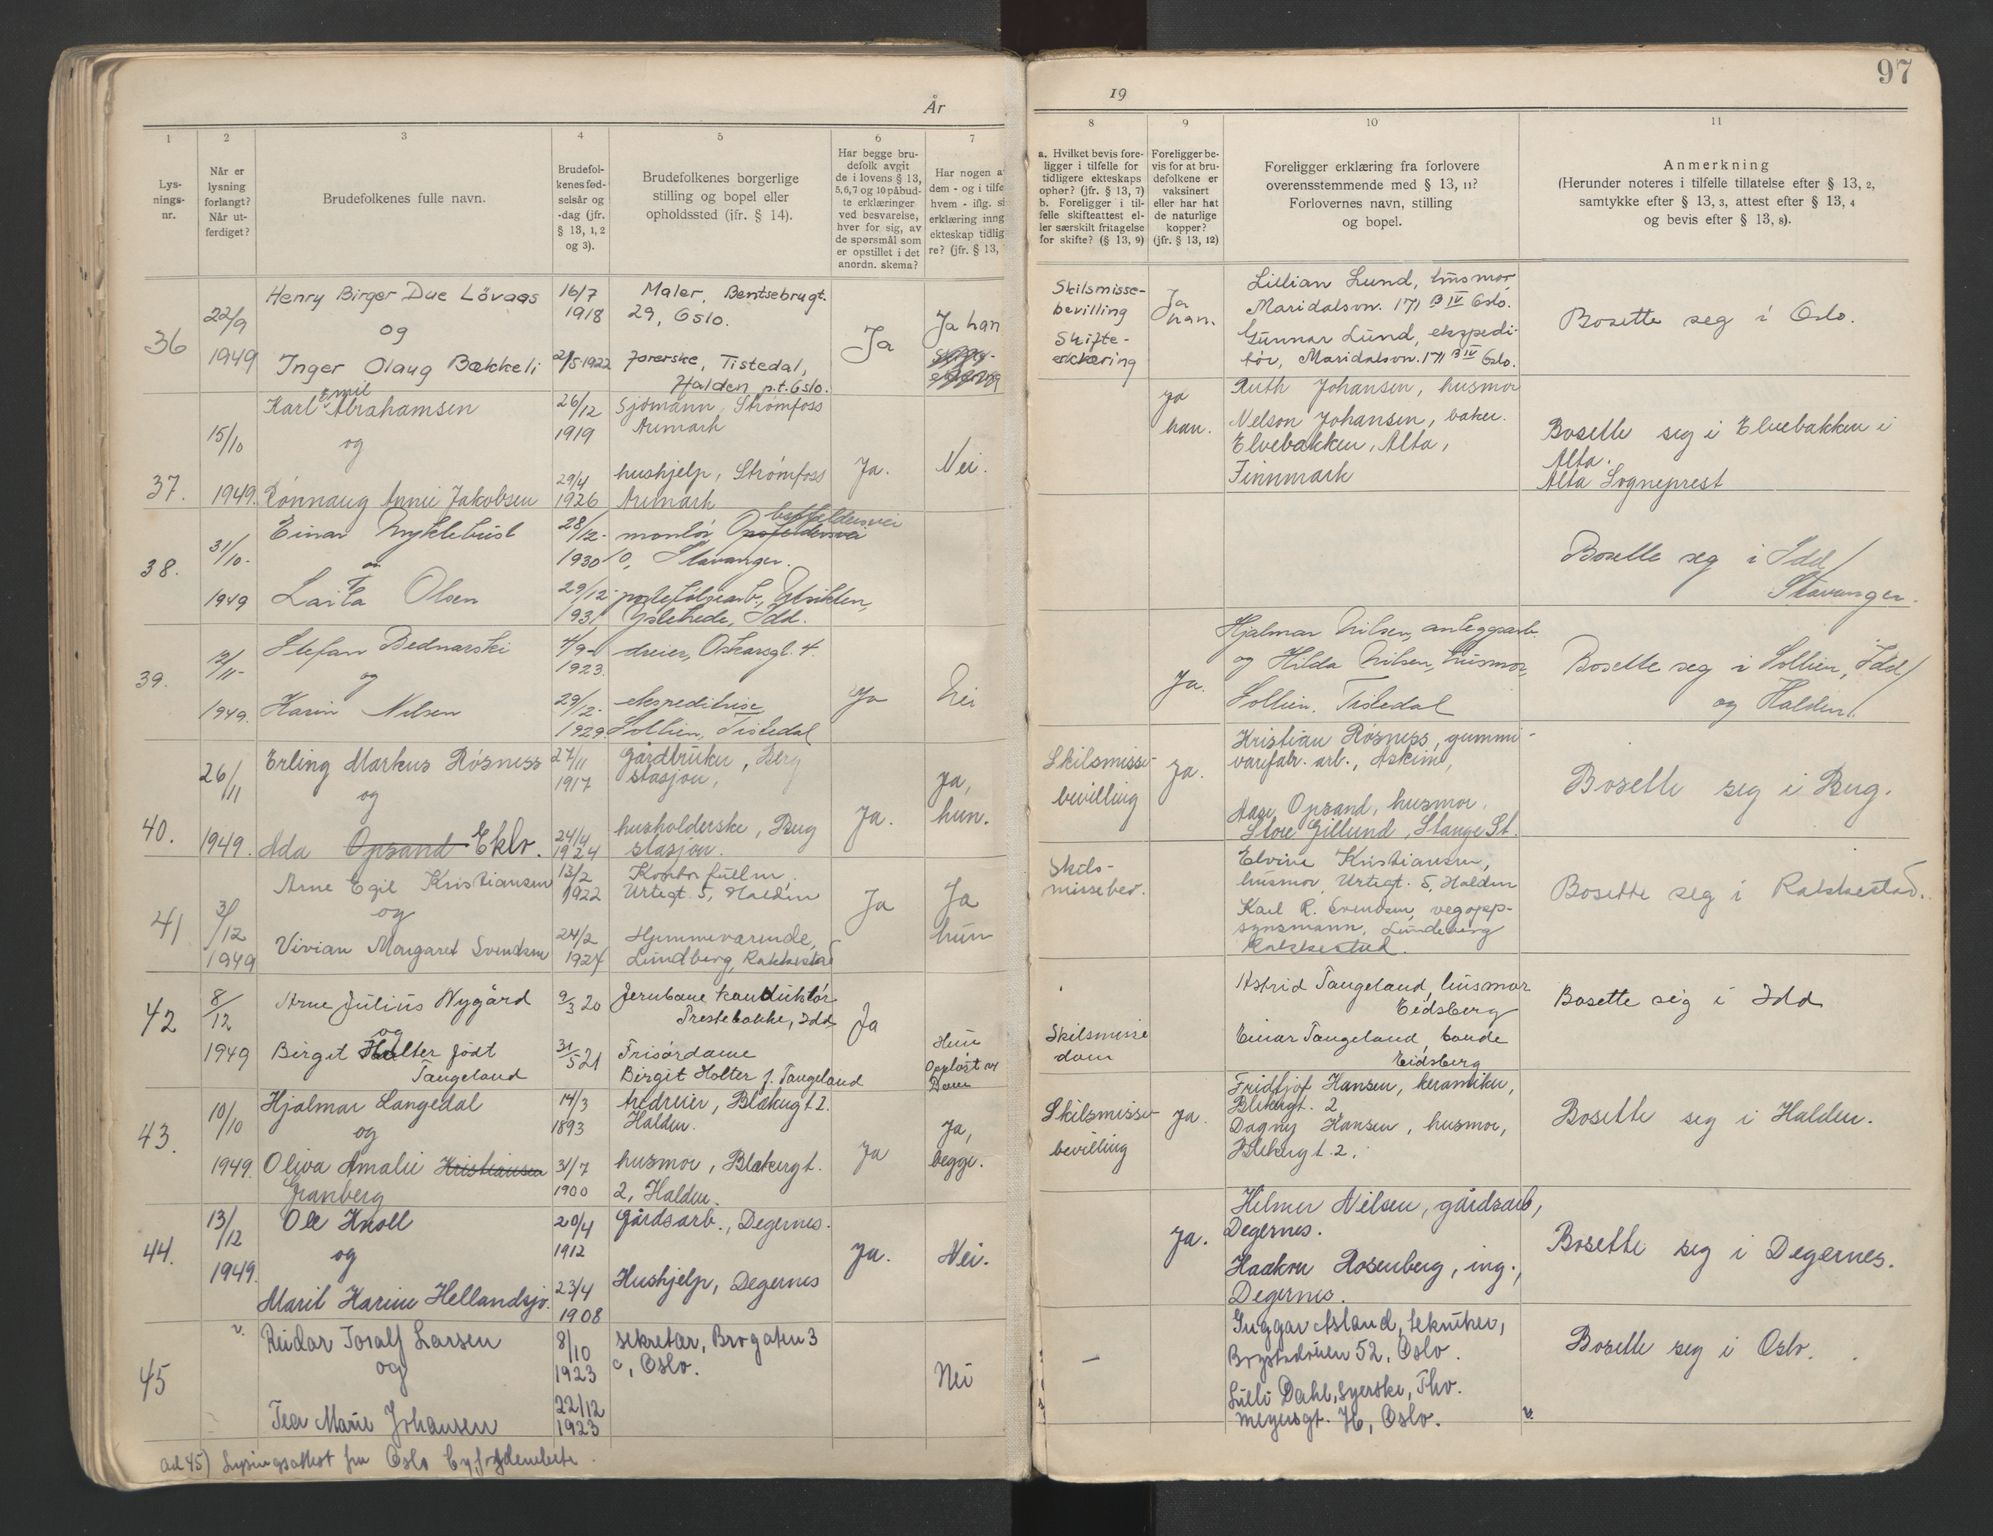 97
År
19
1
2
3
4
5
6
7
8
9
10
11
Lys-
nings-
nr.
Når er
lysning
forlangt?
Når ut-
ferdiget?
Brudefolkenes fulle navn.
Brudefol-
kenes fød-
selsår og
-dag (jfr.
§ 13, 1, 2
og 3).
Brudefolkenes borgerlige
stilling og bopel eller
opholdssted (jfr. § 14).
Har begge bru-
defolk avgit
de i lovens § 13,
5, 6, 7 og 10 påbud-
te erklæringer
ved besvarelse,
hver for sig, av
de spørsmål som
er opstillet i det
anordn. skema?
Har nogen a
dem - og i tilfe
hvem - iflg. si
erklæring inng
ekteskap tidlig
re? (jfr. § 13,
a. Hvilket bevis fore-
ligger i tilfelle for
tidligere ekteskaps
ophør? (jfr. § 13, 7)
b. Foreligger i til-
felle skifteattest el-
ler særskilt fritagelse
for skifte? (§ 13, 9)
Foreligger be-
vis for at bru-
defolkene er
vaksinert
eller har hat
de naturlige
kopper?
(jfr. § 13, 12)
Foreligger erklæring fra forlovere
overensstemmende med § 13, 11?
Forlovernes navn, stilling
og bopel.
Anmerkning
(Herunder noteres i tilfelle tillatelse efter § 13, 2,
samtykke efter § 13, 3, attest efter § 13, 4
og bevis efter § 13, 8).
36
22/9
1949
Henry Birger Due Lövaas
og
Inger Olaug Bækkeli
16/7
1918
2/5 1922
Maler, Bentsebrugt.
29, Oslo.
Tistedal,
Halden p.t. Oslo.
Ja
Ja han
Skilsmisse-
bevilling
Skifte-
erklæring
Ja
han.
Lillian Lund, husmor
Maridalsvn. 171 B IV Oslo.
Gunnar Lund, ekspedi-
tør, Maridalsvn. 171 B IV Oslo.
Bosette seg i Oslo.
37.
15/10
1949.
Karl Emil Abrahamsen
og
Rønnaug Annie Jakobsen
26/12
1919
29/4
1926
Sjömann, Strømfoss
Aremark
hushjelp, Strømfoss
Aremark
Ja.
Nei.
Ja
han.
Ruth Johansen, husmor
Nelson Johansen, baker.
Elvebakken, Alta,
Finnmark
Bosette seg i Elvebakken i
Alta.
Alta Sogneprest
38.
31/10-
1949
Einar Myklebust
og
Laila Olsen
28/12-
1930
29/12-
1931
montør
0, Stavanger.
Idd.
Bosette seg i Idd/
Stavanger.
39.
12/11-
1949.
Stefan Bednarski
og
Karin Nilsen
4/9-
1923.
29/2-
1929.
dreier, Oskarsgt. 4.
ekspeditrise
Sollien, Tistedal
Ja
Nei
Ja.
Hjalmar Nilsen, anleggsarb.
og Hilda Nilsen, husmor,
Sollien. Tistedal
Bosette seg i Sollien, Idd/
og Halden/.
40.
26/11
1949.
Erling Markus Rösness
og
Ada Opsand Eklo.
27/11
1917
24/4
1924
Gårdbruker, Berg
stasjon,
husholderske, Berg
stasjon.
Ja.
Ja,
hun.
Skilsmisse-
bevilling
Ja.
Kristian Rösness, gummi-
varefabr. arb., Askim,
Aase Opsand, husmor,
Store Gillund, Stange St.
Bosette seg i Berg.
41
3/12
1949
Arne Egil Kristiansen
og
Vivian Margaret Svendsen
13/2
1922
24/2
1927
Kontorfullm,
Urtegt. 5, Halden
Hjemmeværende,
Lundberg, Rakkestad
Ja
Ja
hun
Skils-
missebev.
Elvine Kristiansen,
husmor, Urtegt. 5, Halden
Karl R. Svendsen, vegopp-
synsmann, Lundeberg
Rakkestad.
Bosette seg i Rakkestad.
42
8/12
1949
Arne Julius Nygård
og
Birgit Holter födt
Tangeland
9/3 20
31/5 21
Jernbane konduktör
Prestebakke, Idd
Frisördame
Birgit Holter f. Tangeland
Ja
Hun
Opplöst ve
Dom
Skilsmisse
dom
Astrid Tangeland, husmor
Eidsberg
Einar Tangeland, bonde
Eidsberg
Bosette seg i Idd
43.
10/10
1949.
Hjalmar Langedal
og
Oliva Amalie Kristiansen
Granberg
14/3
1893
31/7
1900
Tredreier, Blekergt 2.
Halden.
husmor, Blekergt.
2, Halden.
Ja
Ja,
begge.
Skilsmisse-
bevilling
Ja.
Fridtjof Hansen, keramiker,
Blekergt. 2,
Dagny Hansen, husmor,
Blekergt. 2,
Bosette seg i Halden.
44.
13/12
1949.
Ole Knoll
og
Marit Karine Hellandsjø.
20/4
1912
23/4
1908
Gårdsarb., Degernes.
Hushjelp, Degernes
Ja.
Nei.
Ja.
Hilmer Nilsen, gårdsarb,
Degernes.
Haakon Rosenberg, ing.,
Degernes.
Bosette seg i Degernes.
45
Reidar Toralf Larsen
og
Tea Marie Johansen
8/10
1923
22/12
1923
sekretær, Brogaten 3
c, Oslo.
Nei
—
Åsland, tekniker,
52, Oslo.
Lilli Dahl, syerske, Thv.
Meyersgt. Oslo.
Bosette seg i Oslo.
ad 45) Lysingsattest fra Oslo byfogdembete.